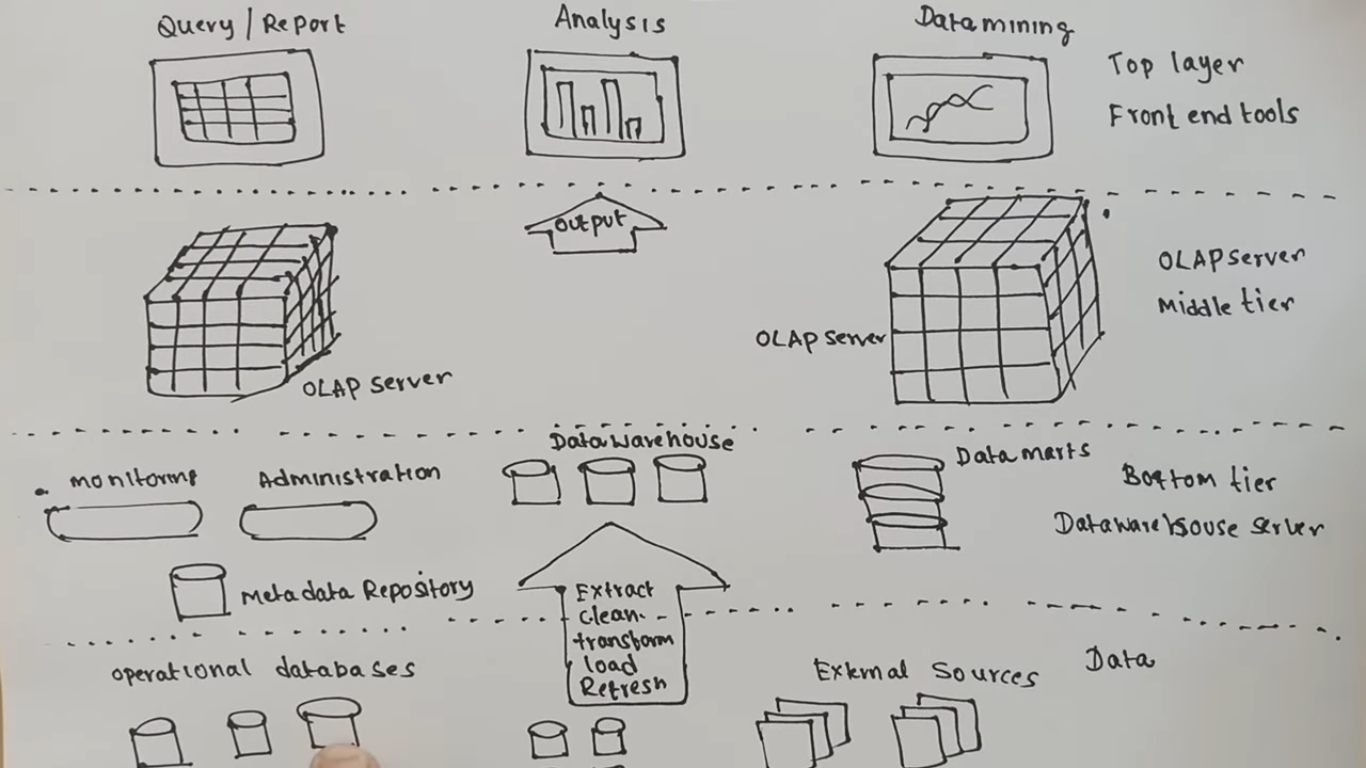 Query / Report
Analysis
Datamining
Top layer
Front end tools
output
OLAP server
Middle tier
OLAP server
OLAP server
Data warehouse
monitoring
Administration
Data marts
Bottom tier
Datawarehouse server
Metadata Repository
Extract
clean
transform
load
Refresh
operational databases
External Sources
Data